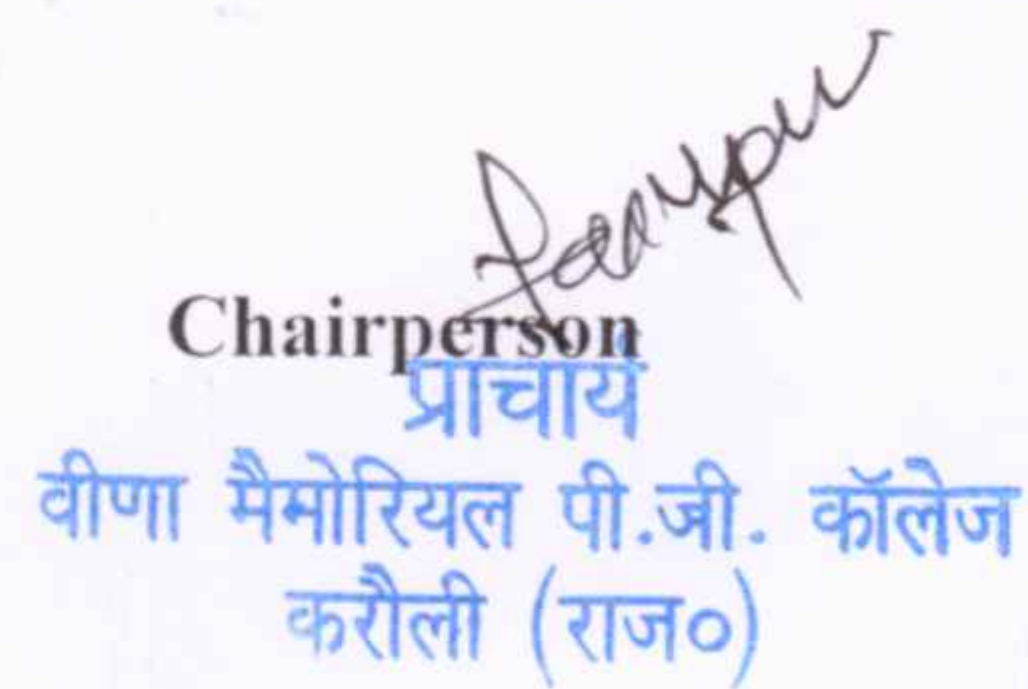 Chairperson
प्राचार्य
वीणा मैमोरियल पी.जी. कॉलेज
करौली (राज०)